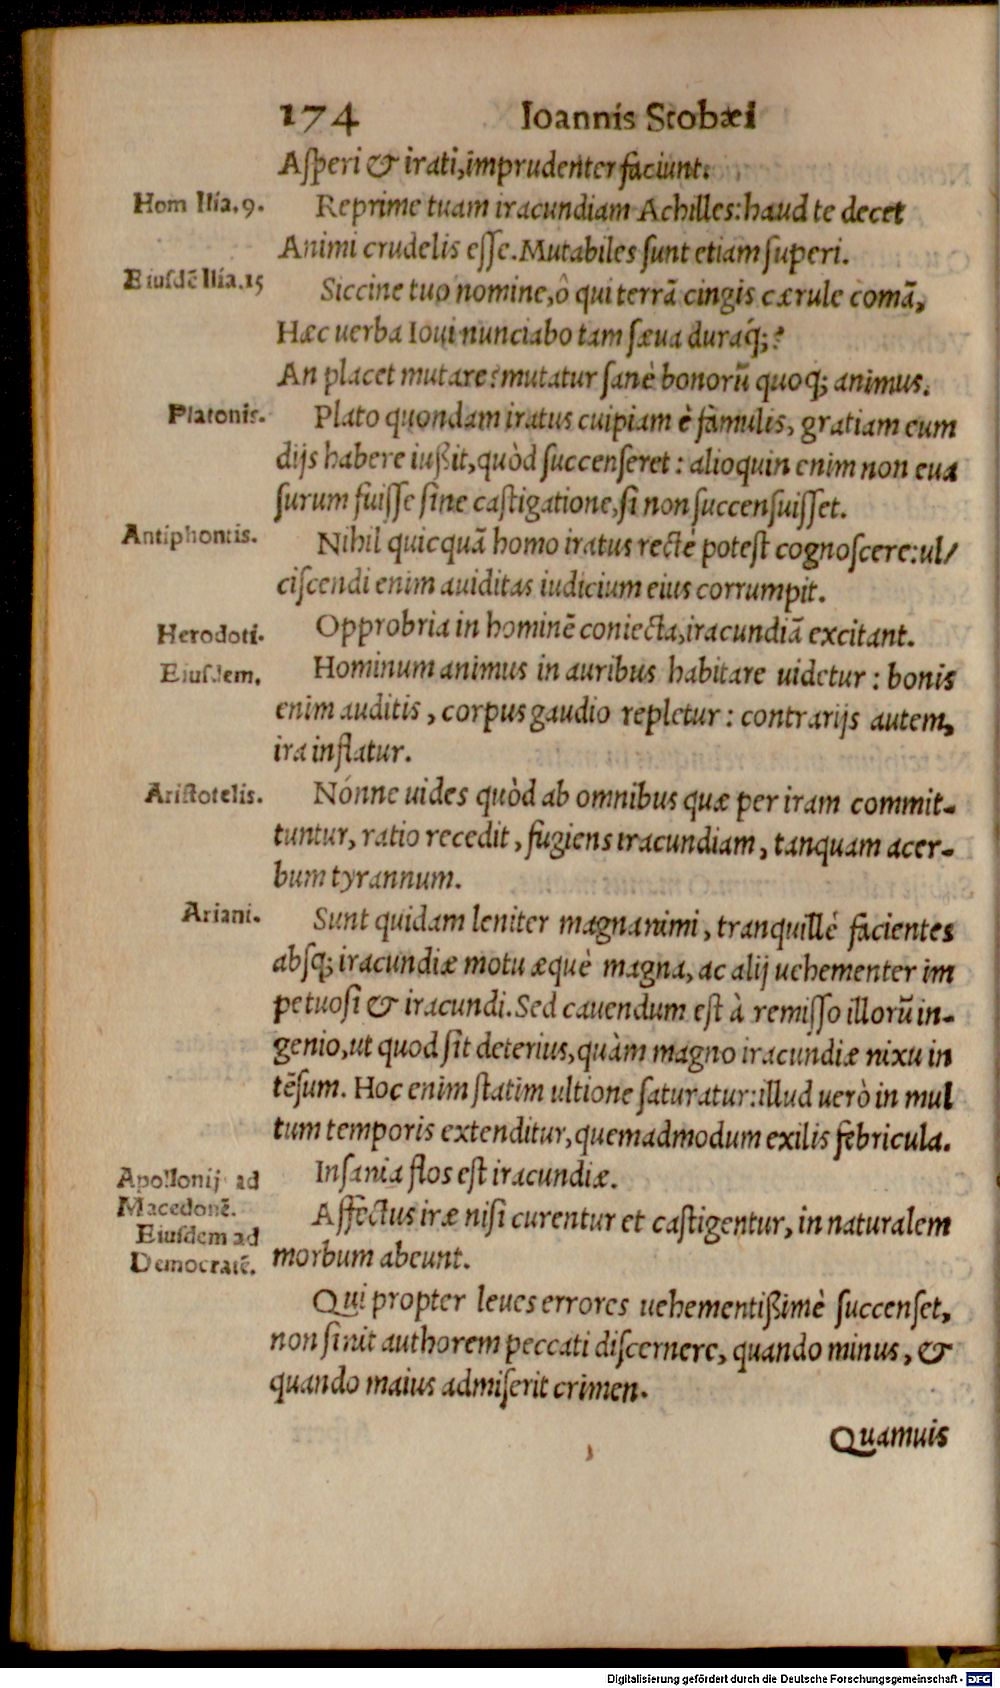 174 Ioannis Stobæi
Asperi & irati, imprudenter faciunt.
Hom Ilia. 9.
Reprime tuam iracundiam Achilles: haud te decet
Animi crudelis esse. Mutabiles sunt etiam superi.
Eiusdē Ilia. 15
Siccine tuo nomine, ô qui terrā cingis cærule comā,
Hæc uerba Ioui nunciabo tam sæua duraq́;?
An placet mutare? mutatur sanè bonorū quoq; animus.
Platonis.
Plato quondam iratus cuipiam è famulis, gratiam eum
dijs habere iußit, quòd succenseret: alioquin enim non eua
surum fuisse sine castigatione, si non succensuisset.
Antiphontis.
Nihil quicquā homo iratus rectè potest cognoscere: ul/
ciscendi enim auiditas iudicium eius corrumpit.
Herodoti.
Opprobria in hominē coniecta, iracundiā excitant.
Eiusdem.
Hominum animus in auribus habitare uidetur: bonis
enim auditis, corpus gaudio repletur: contrarijs autem,
ira inflatur.
Aristotelis.
Nónne uides quòd ab omnibus quæ per iram commit-
tuntur, ratio recedit, fugiens iracundiam, tanquam acer-
bum tyrannum.
Ariani.
Sunt quidam leniter magnanimi, tranquillè facientes
absq; iracundiæ motu æquè magna, ac alij uehementer im
petuosi & iracundi. Sed cauendum est à remisso illorū in-
genio, ut quod sit deterius, quàm magno iracundiæ nixu in
tēsum. Hoc enim statim ultione saturatur: illud uerò in mul
tum temporis extenditur, quemadmodum exilis febricula.
Apollonij ad
Macedonē.
Insania flos est iracundiæ.
Eiusdem ad
Democratē.
Affectus iræ nisi curentur et castigentur, in naturalem
morbum abeunt.
Qui propter leues errores uehementißimè succenset,
non sinit authorem peccati discernere, quando minus, &
quando maius admiserit crimen.
Quamuis
Digitalisierung gefördert durch die Deutsche Forschungsgemeinschaft - DFG